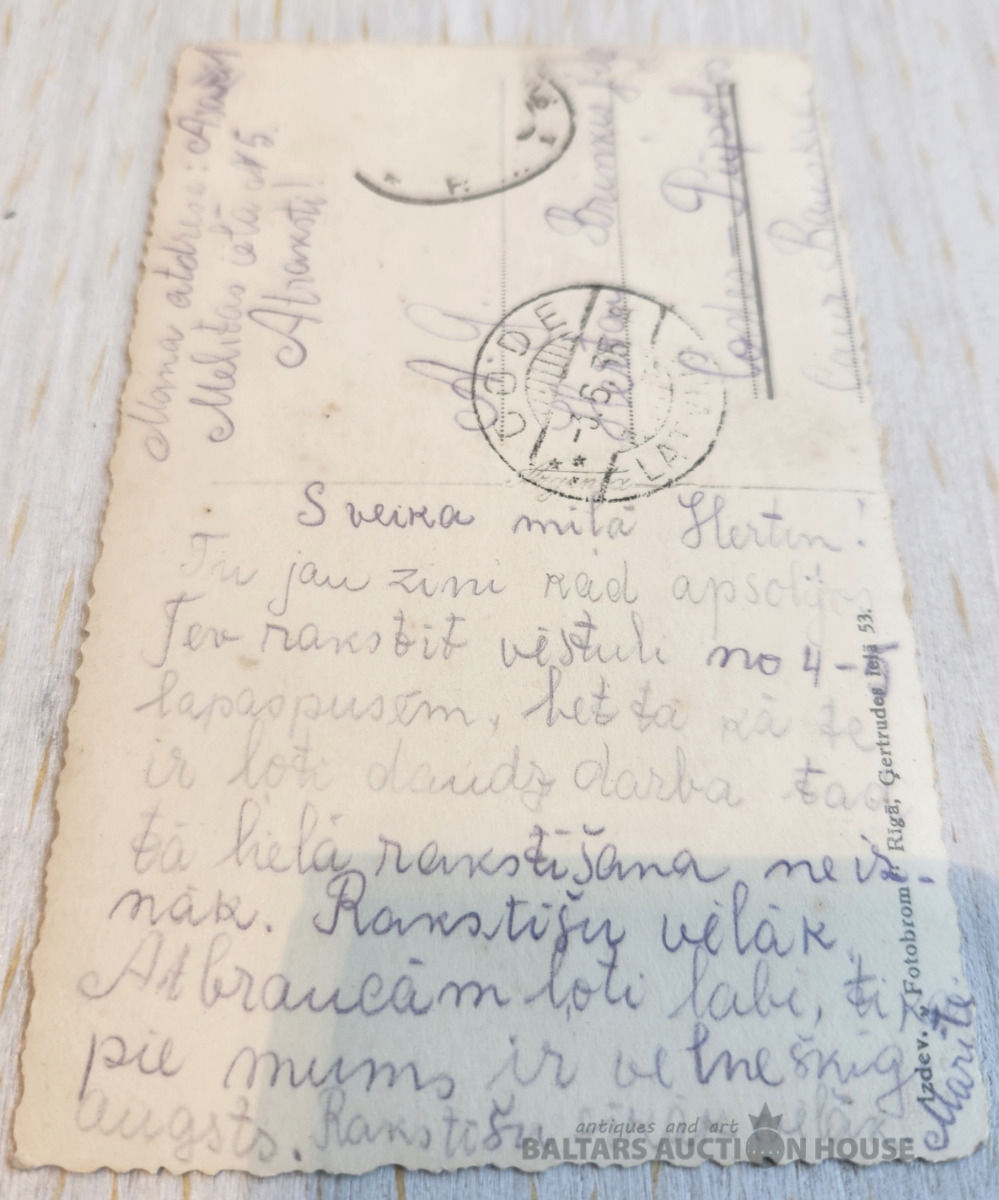 Mana atdrese:
Melitas ielā № 5.
Atrakstī!
A. G.
Hertai Brinkus
Pūpol
Caur Rau
UODE
-3.6.35
LATVIJA
Sveika miļā Hertiņ!
Tu jau zini kad apsolijos
Tev rakstit vēstuli no 4-
lapaspusēm, bet tā kā te
ir ļoti daudz darba tad
tā lielā rakstīšana neiz-
nāk. Rakstīšu vēlāk.
Atbraucām ļoti labi, tik
pie mums ir velnešķīg
augsts. Rakstīšu vēlāk
Marite.
Izdev. Fotobrom Rīgā, Ģertrudes ielā 53.
antiques and art
BALTARS AUCTION HOUSE